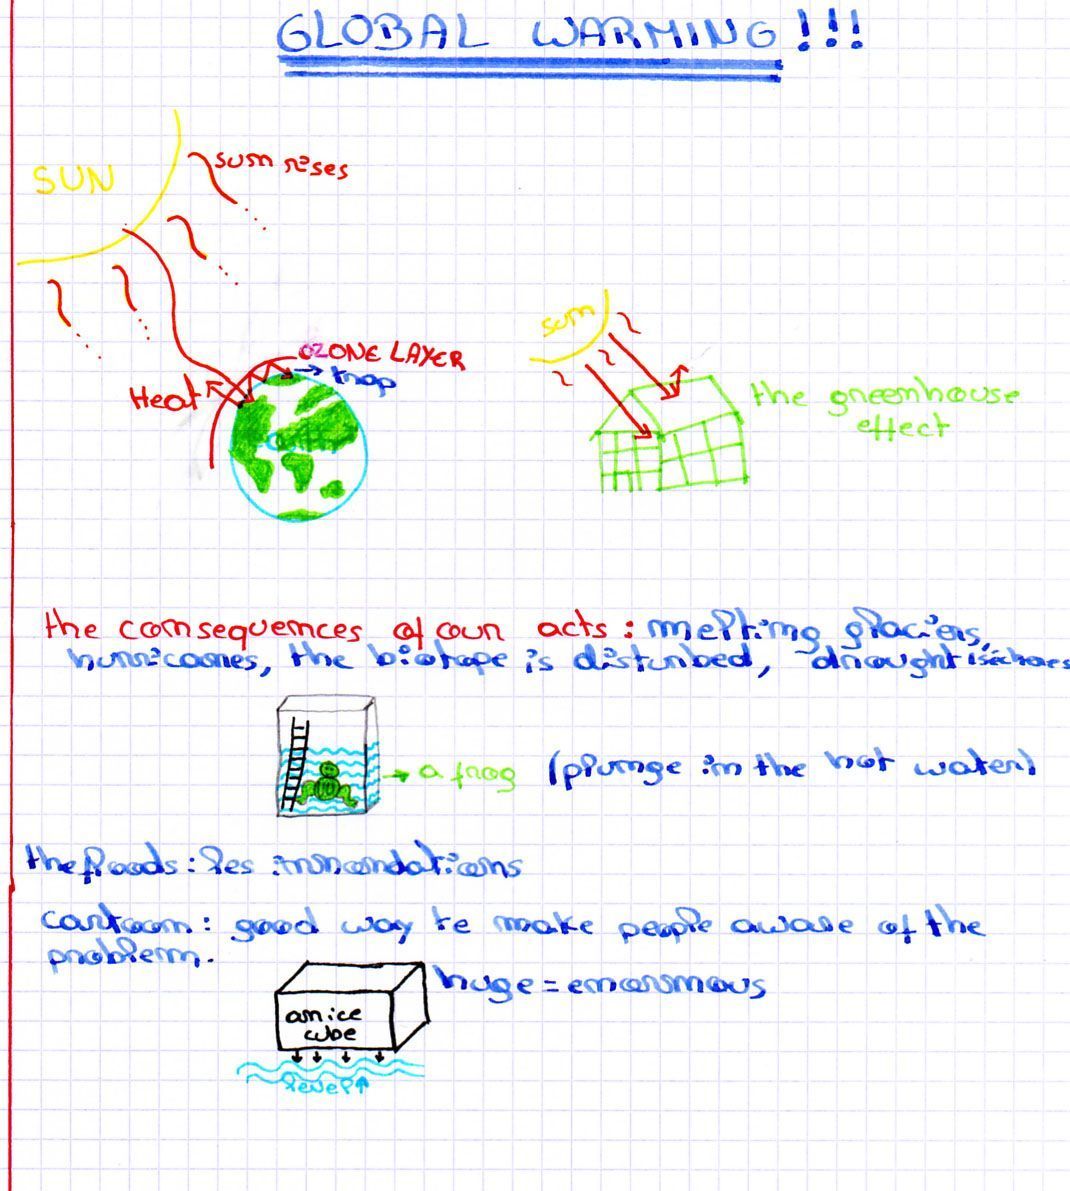 GLOBAL WARMING !!!
SUN
sun rises
sun
OZONE LAYER
→ trap
Heat
the greenhouse
effect
the consequences of our acts : melting glaciers,
hurricanes, the biotope is disturbed, drought
→ a frog (plunge in the hot water)
the floods : les innondations
cartoon : good way to make people aware of the
problem.
huge = enormous
an ice
cube
level ↑